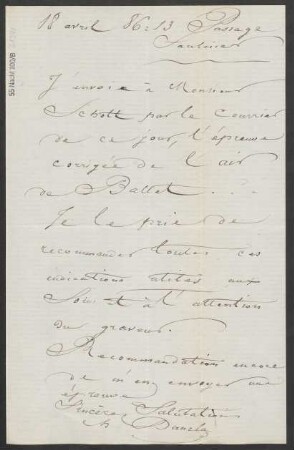 18 avril 86. 13 Passage
Saulnier
J'envoie à Monsieur
Schott par le Courrier
de ce jour, l'épreuve
corrigée de l'air
de Ballet.
Je le prie de
recommander toutes ces
indications aux
soins et à l'attention
du graveur.
Recommandation encore
de m'en envoyer une
épreuve
Sincères Salutations